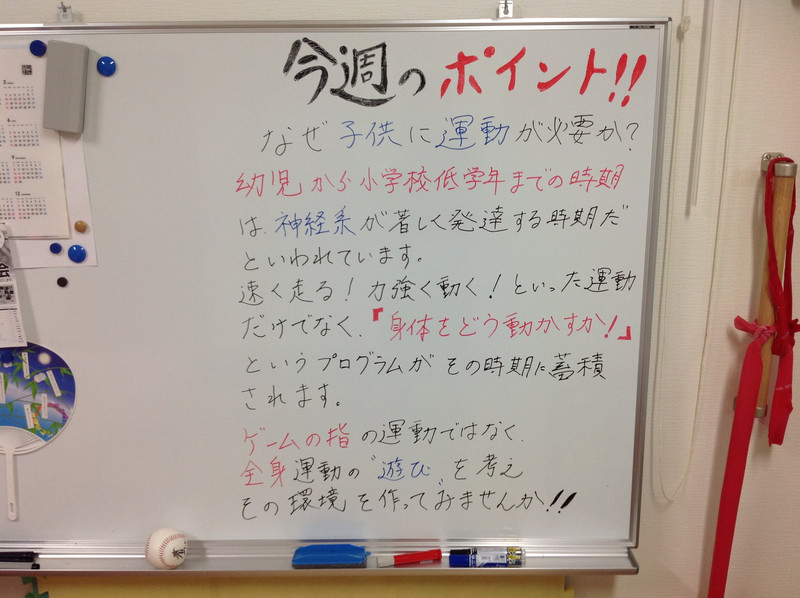 今週のポイント!!
なぜ子供に運動が必要か?
幼児から小学校低学年までの時期
は、神経系が著しく発達する時期だ
といわれています。
速く走る!力強く動く!といった運動
だけでなく、『身体をどう動かすか!』
というプログラムがその時期に蓄積
されます。
ゲームの指の運動ではなく、
全身運動の"遊び"を考え
その環境を作ってみませんか!!